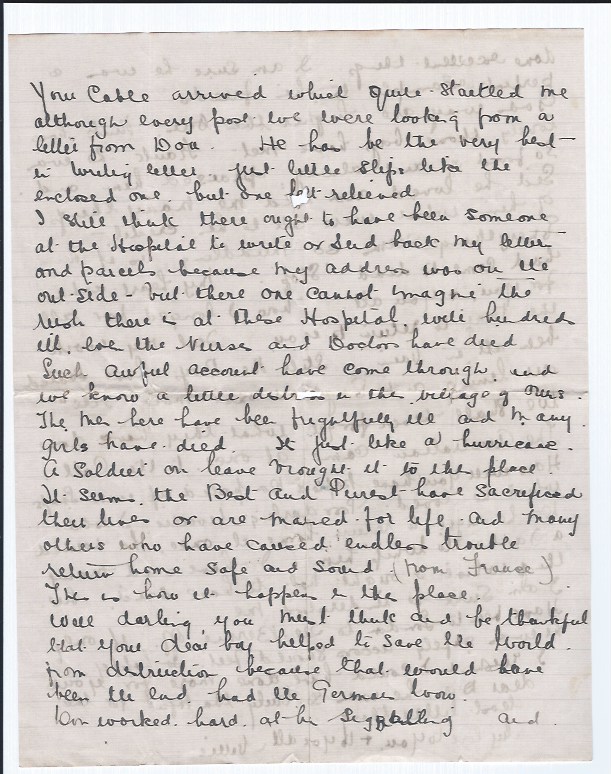 Your Cable arrived which quite startled me
although every post we were looking from a
letter from Don. He has be the very best
in writing letter. just little slips like the
enclosed one, but one felt relieved
I still think there ought to have been someone
at the Hospital to write or send back my letter
and parcels because my address was on the
out-side - but there one cannot imagine the
rush there is at these Hospital with hundreds
ill. even the Nurses and Doctors have died
Such awful account have come through, and
we know a little distress in the village of ours.
The men here have been frightfully ill and many
girls have died It just like a hurricane.
A Soldier on leave brought it to the place
It seems the Best and Purest have sacrificed
their lives or are maimed for life. and many
others who have caused endless trouble
return home safe and sound (from France)
This is how it happen in the place.
Well darling you must think and be thankful
that your dear boy helped to save the World
from destruction because that would have
been the end. had the German won.
Don worked hard at his Signalling and